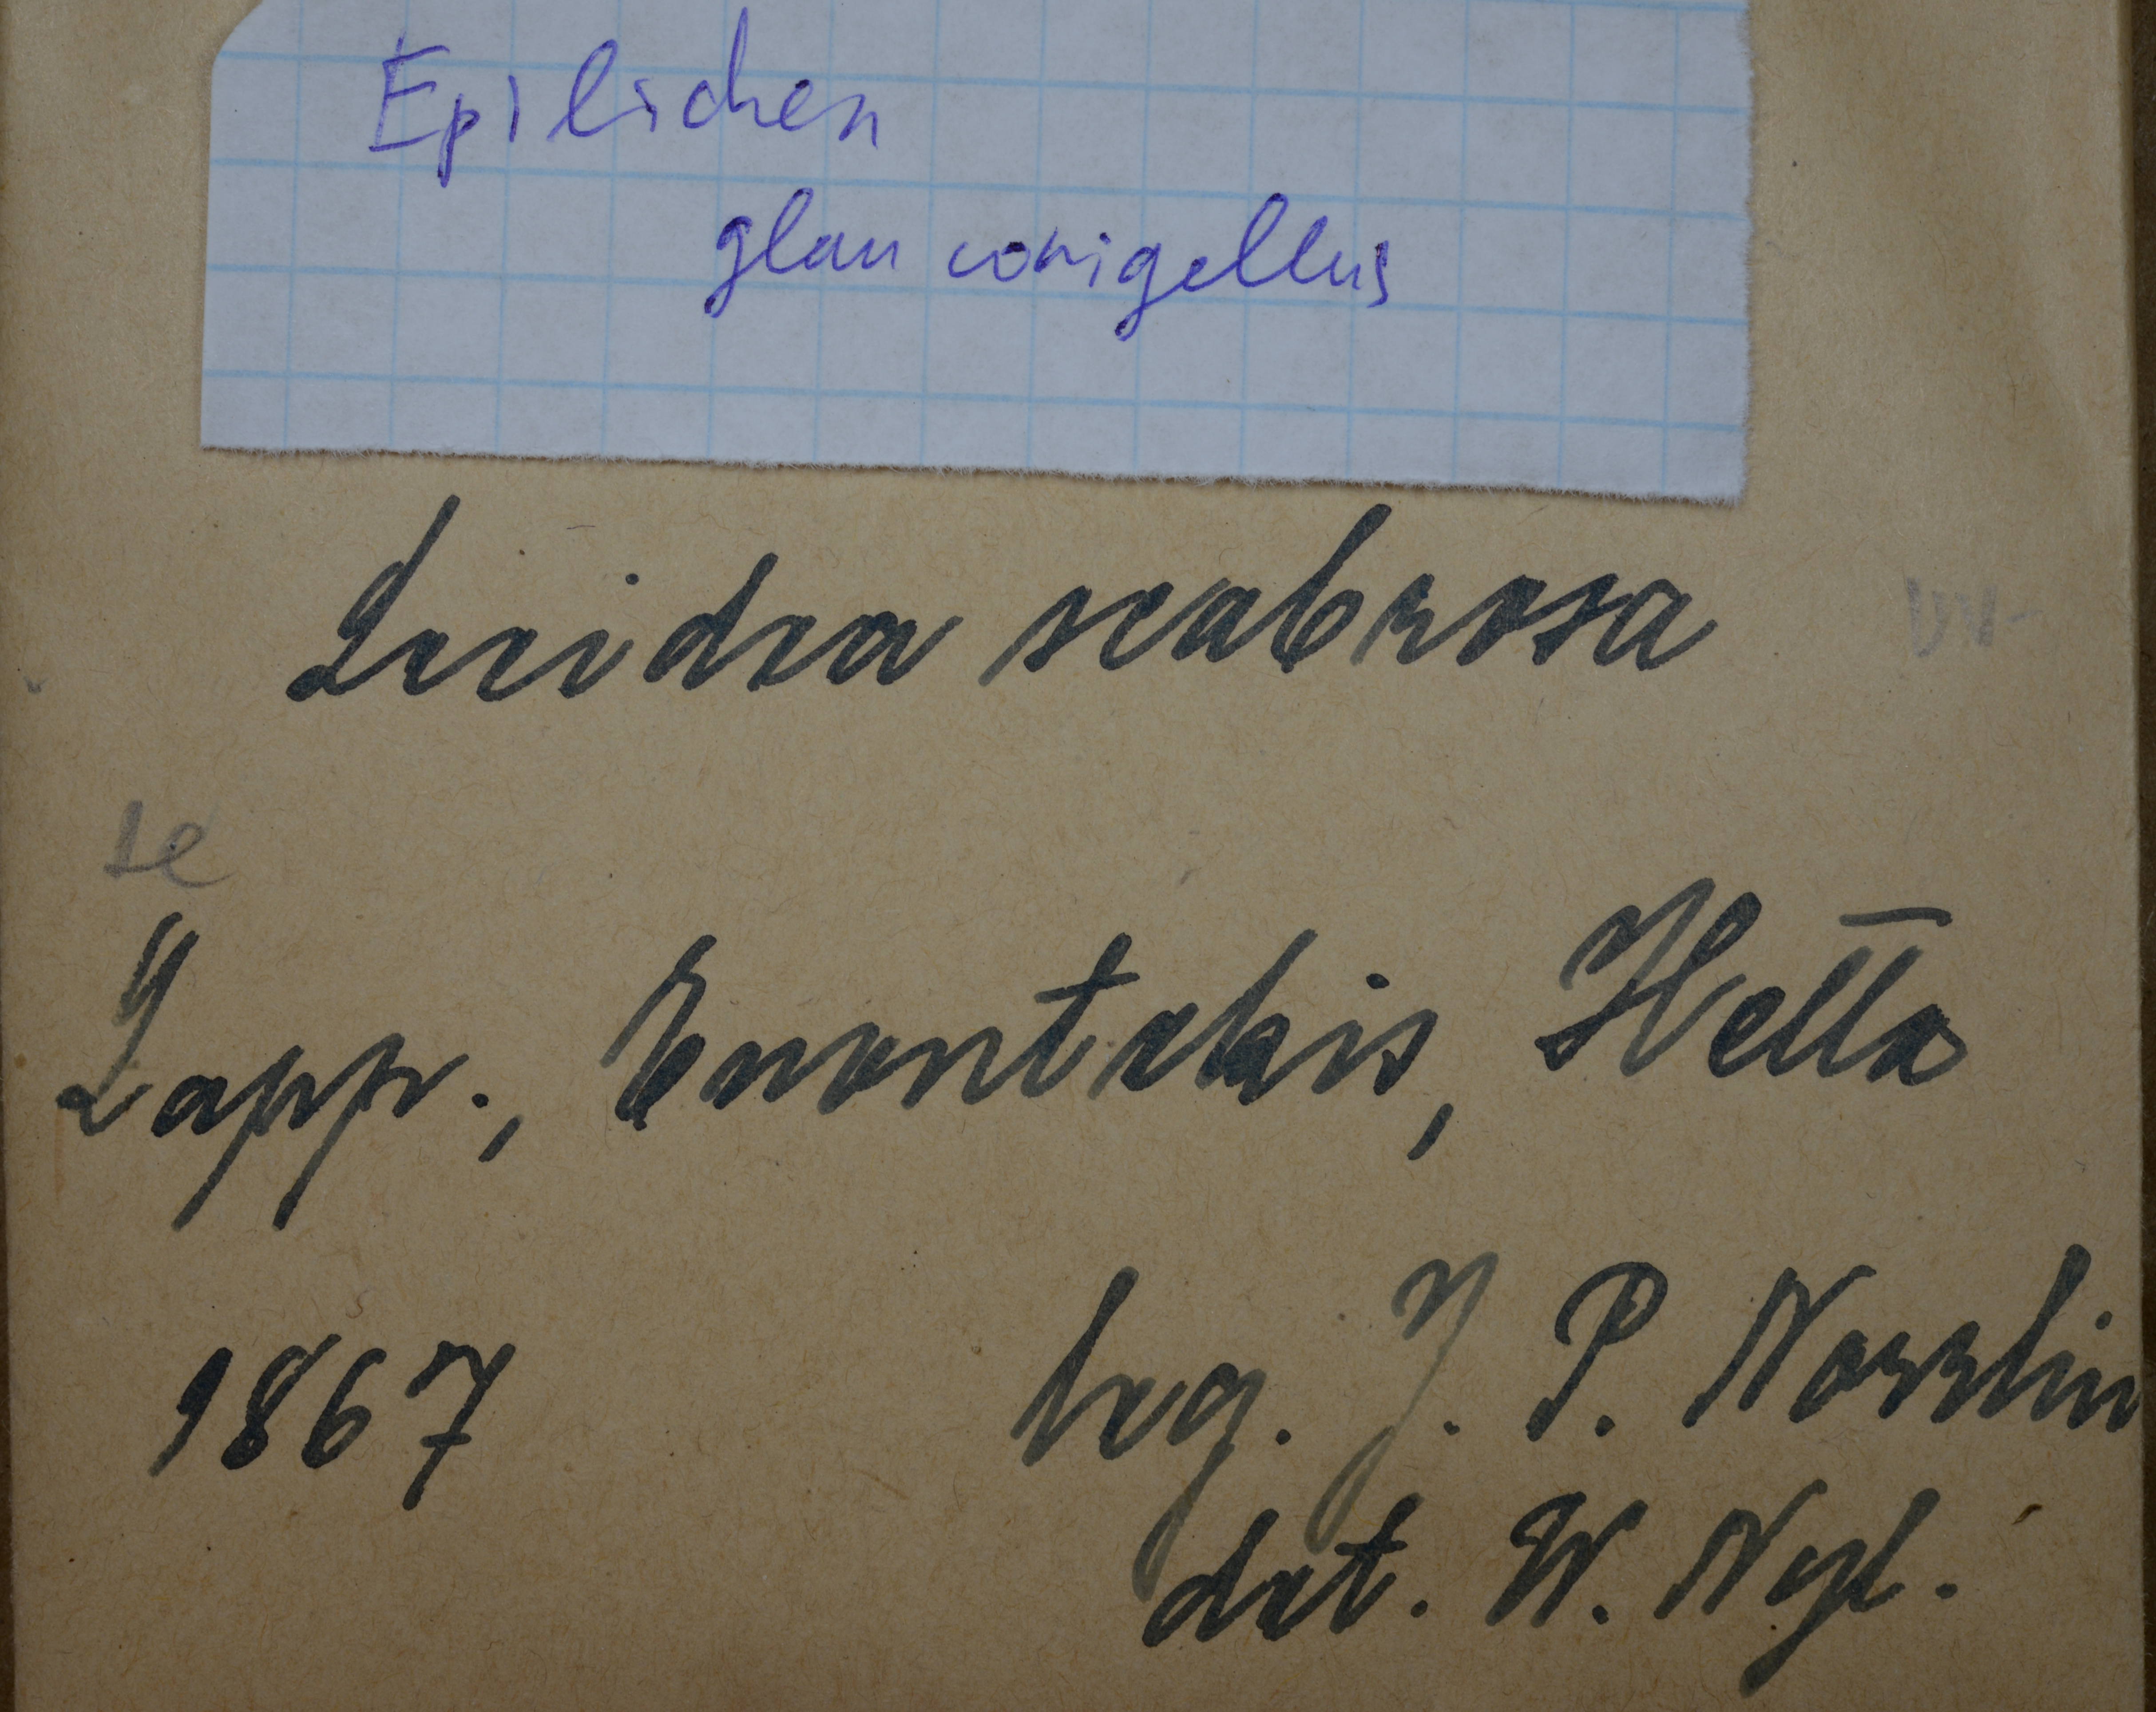 Epilichen
glauconigellus
Lecidea scabrosa
se
Lapp., Enontekis, Hetta
1867
leg. J. P. Norrlin
det. W. Nyl.